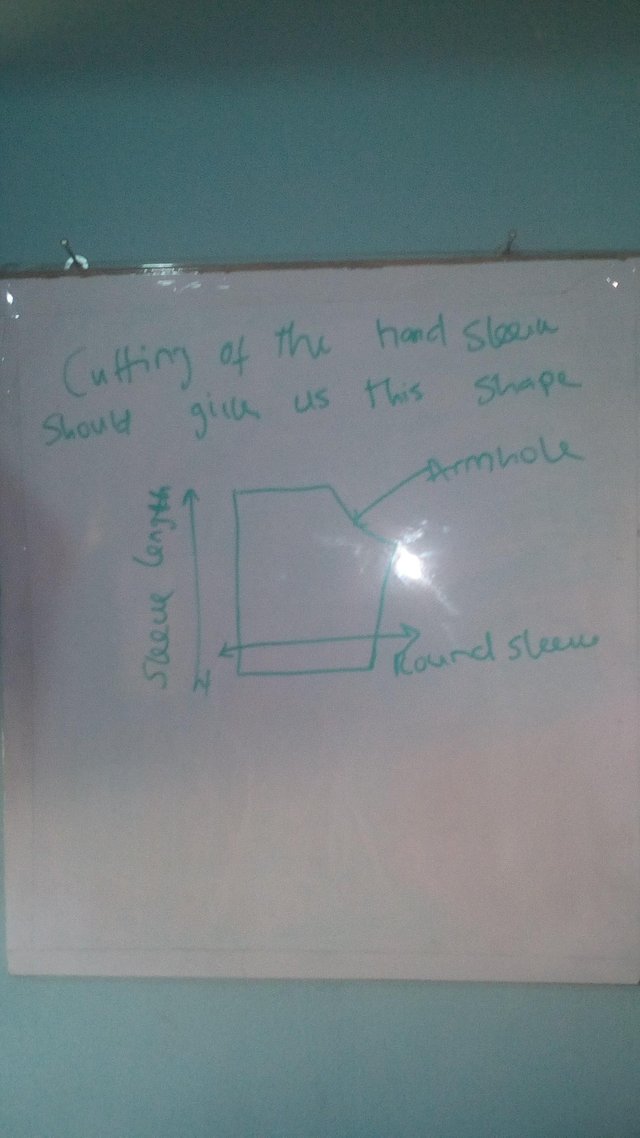 Cutting of the hand sleeve
should give us this shape
Armhole
Sleeve length
Round sleeve